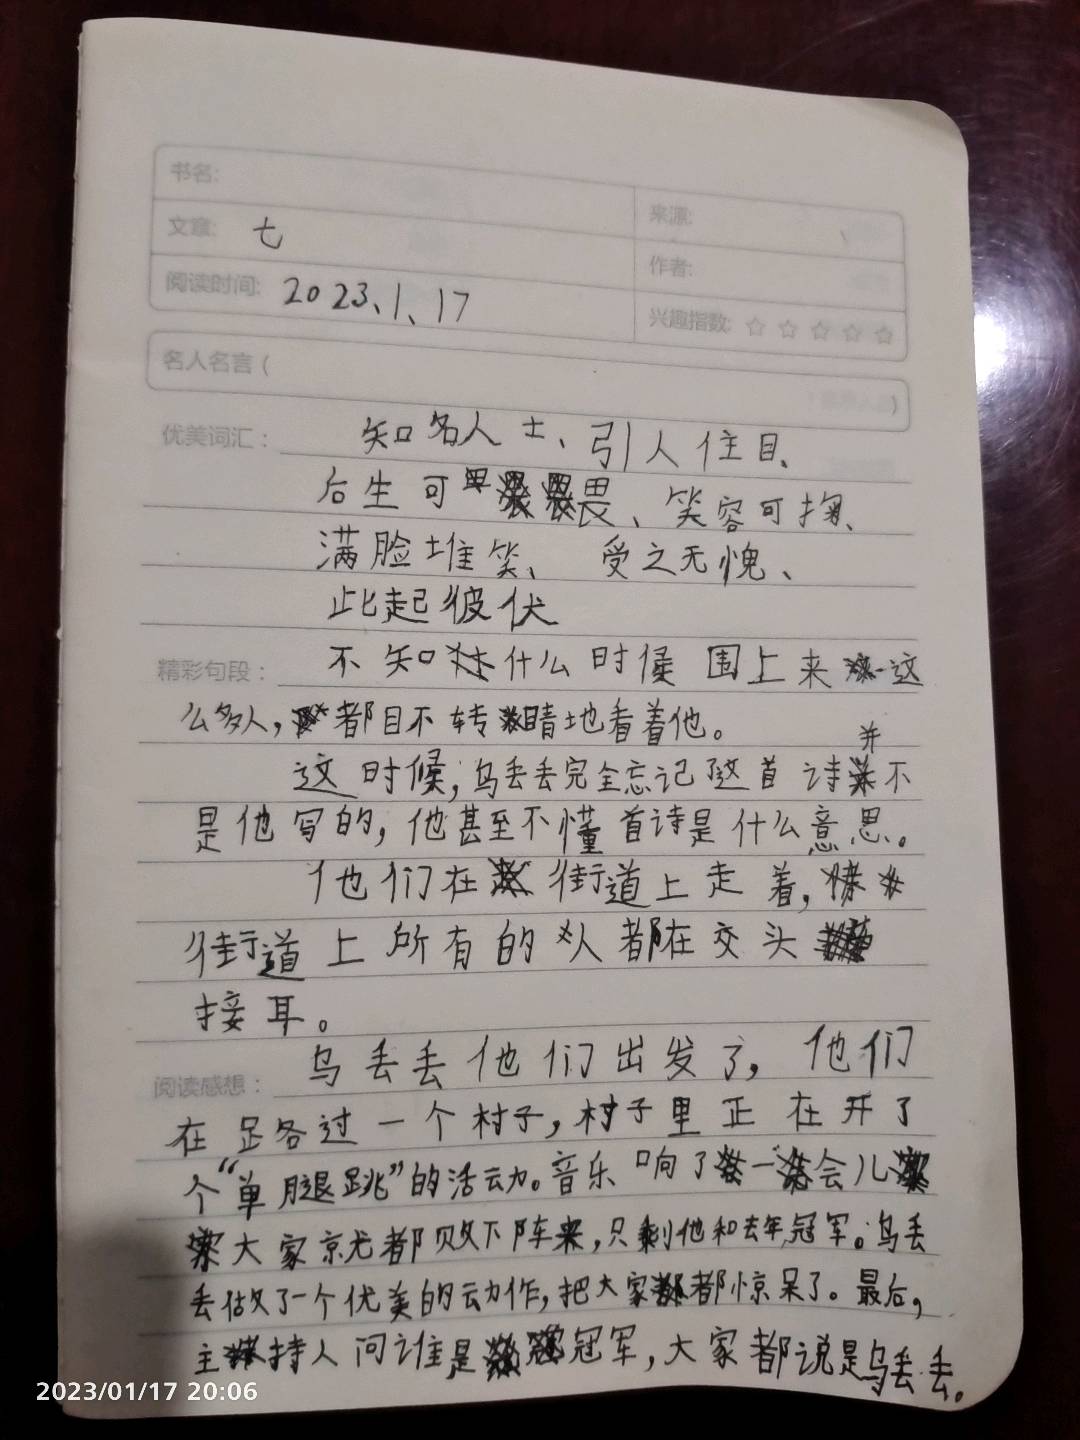 书名:
来源:
文章: 七
作者:
阅读时间: 2023、1、17
兴趣指数: ☆ ☆ ☆ ☆ ☆
名人名言 ( )
优美词汇: 知名人士、引人住目、
后生可畏、笑容可掬、
满脸堆笑、 受之无愧、
此起彼伏
精彩句段: 不知什么时候围上来这
么多人,都目不转睛地看着他。
这时候,乌丢丢完全忘记了这首诗并不
是他写的,他甚至不懂首诗是什么意思。
他们在街道上走着,
街道上所有的人都在交头
接耳。
阅读感想: 乌丢丢他们出发了,他们
在足各过一个村子,村子里正在开了
个“单腿跳”的活动。音乐响了一会儿
大家京尤都败下阵来,只剩他和去年冠军。乌丢
丢做了一个优美的动作,把大家都惊呆了。最后,
主持人问谁是冠军,大家都说是乌丢丢。
2023/01/17 20:06